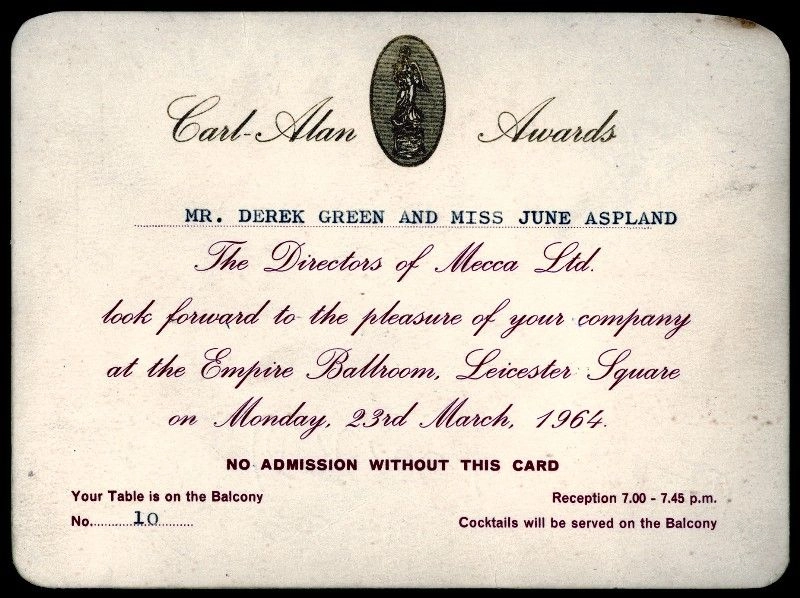 Carl-Alan Awards
MR. DEREK GREEN AND MISS JUNE ASPLAND
The Directors of Mecca Ltd.
look forward to the pleasure of your company
at the Empire Ballroom, Leicester Square
on Monday, 23rd March, 1964.
NO ADMISSION WITHOUT THIS CARD
Your Table is on the Balcony
No. 10
Reception 7.00 - 7.45 p.m.
Cocktails will be served on the Balcony